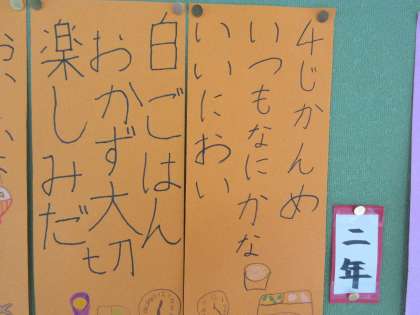 二年
4じかんめ
いつもなにかな
いいにおい
白ごはん
おかず大切
楽しみだ